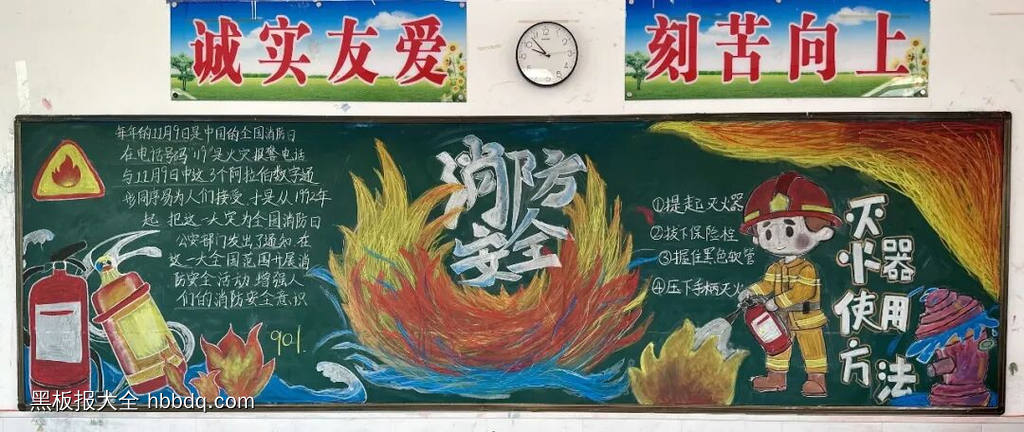 诚实友爱
刻苦向上
每年的11月9日是中国的全国消防日
在电话号码"119"是火灾报警电话
与11月9日中这3个阿拉伯数字通
形同序易为人们接受,才是从1992年
起 把这一天灾为全国消防日
公安部门发出了通知 在
这一天全国范围开展消
防安全活动 增强人
们的消防安全意识
901.
消防
安全
①提起灭火器
②拔下保险栓
③握住黑色软管
④压下手柄灭火
灭火器
使用
方法
黑板报大全 hbbdq.com